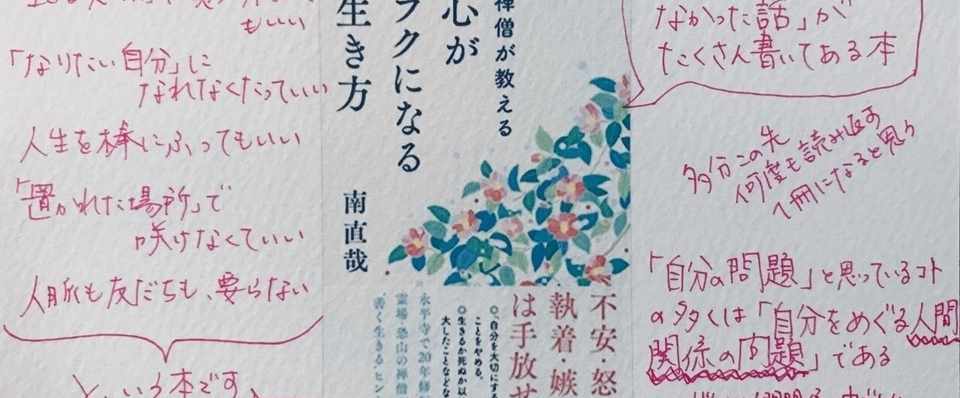 もいい
「なりたい自分」に
なれなくたっていい
人生を棒にふってもいい
「置かれた場所」で
咲けなくていい
人脈も友だちも、要らない
という本です。
禅僧が教える
心が
ラクになる
生き方
南直哉
不安・怒
執着・嫉
は手放せ
◎、自分を大切にする
ことをやめる。
◎生きるか死ぬか以
大したことなどな
永平寺で20年修
霊場・恐山の禅僧
善く生きるヒン
なかった話」が
たくさん書いてある本
多分この先
何度も読み返す
1冊になると思う
「自分の問題」と思っているコト
の多くは「自分をめぐる人間
関係の問題」である